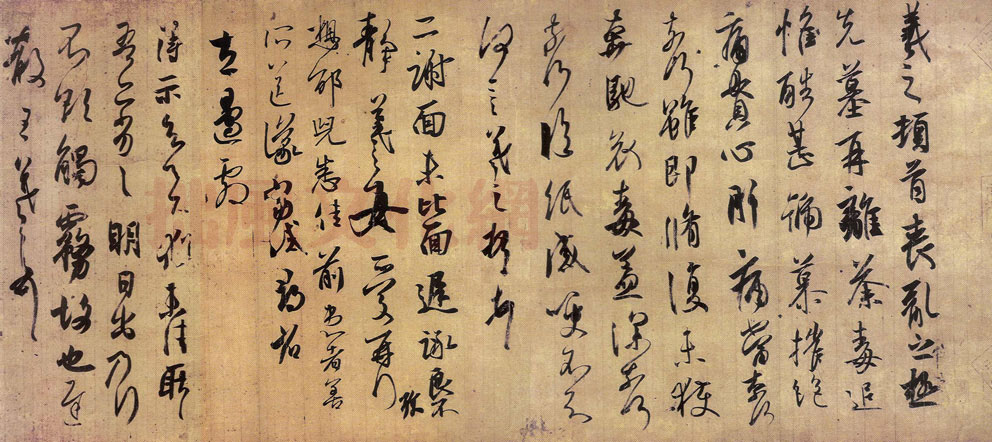 羲之頓首喪亂之極
先墓再離荼毒追
惟酷甚號慕摧絕
痛貫心肝痛當奈何
奈何雖即脩復未獲
奔馳哀毒益深奈何
奈何臨紙感哽不知
何言羲之頓首頓首
二謝面未比面遲詠良不
靜羲之女愛再拜
想邵兒悉佳前患者善
所送議當試尋省
左邊劇
得示知足下猶未佳耿耿
吾亦劣劣明日出乃行
不欲觸霧故也遲
散王羲之頓首
拙風文化網